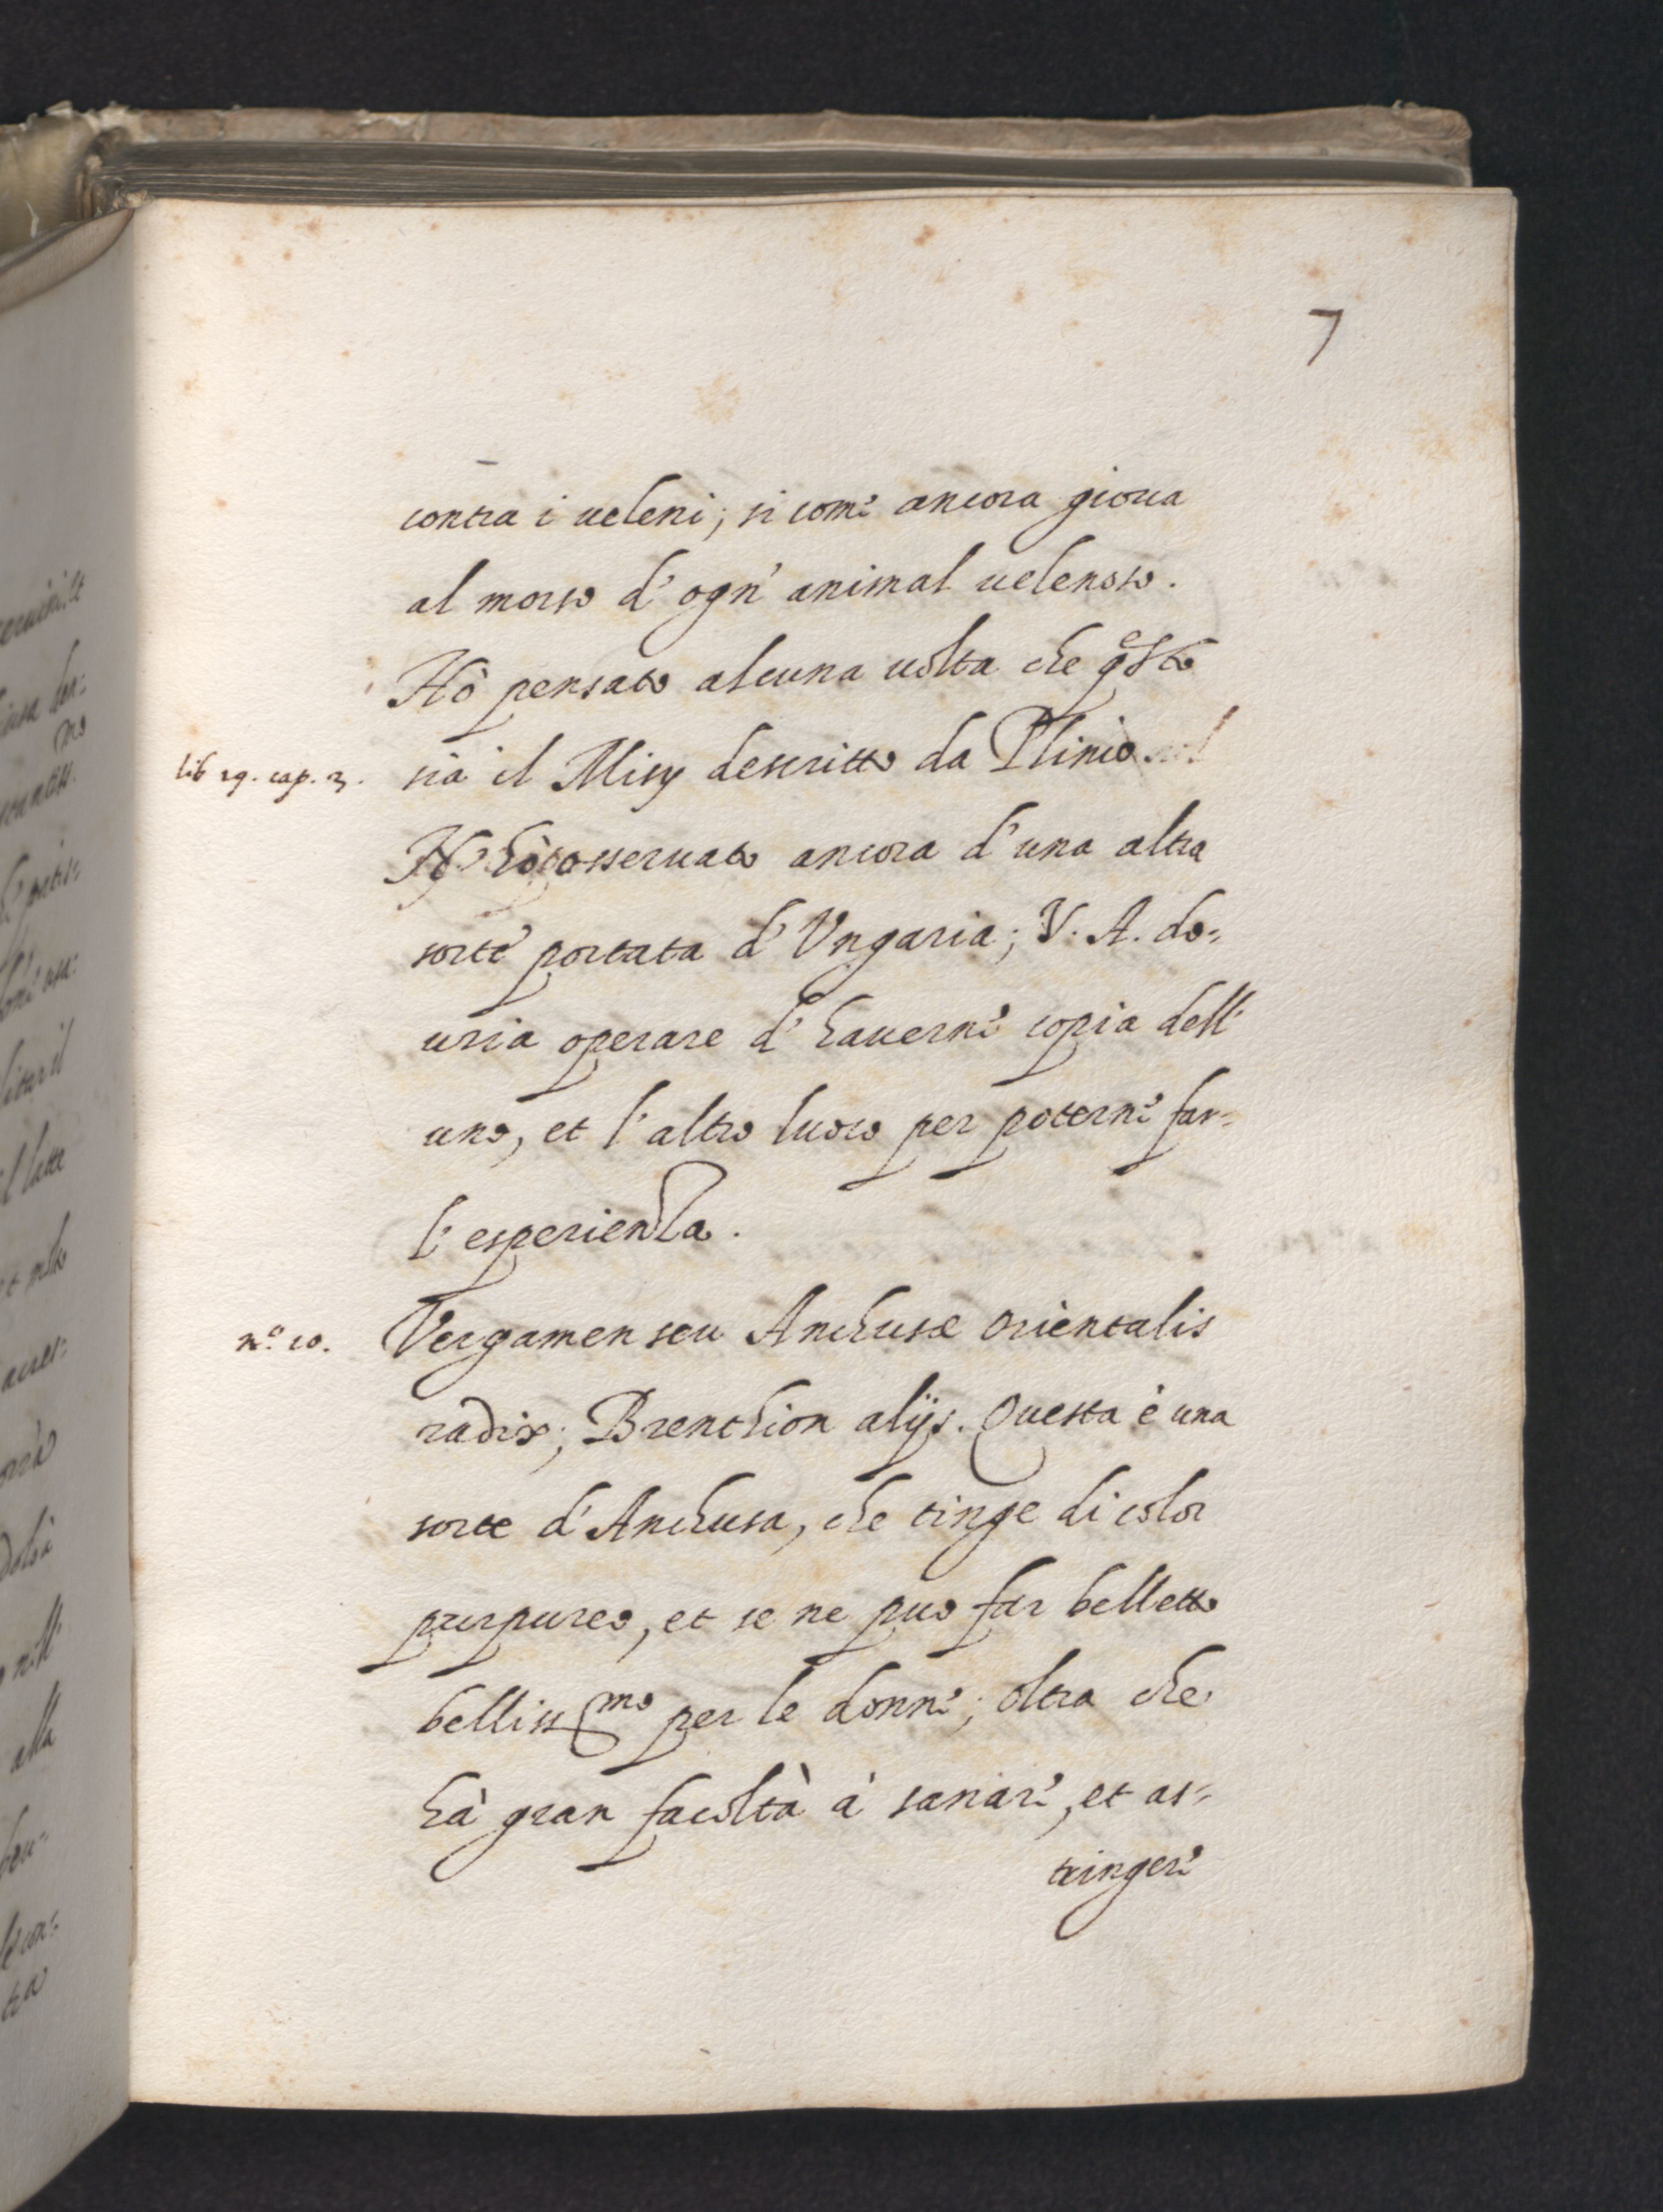 7
contra i ueleni; si come ancora gioua
al morso d' ogn' animal uelenoso.
Hò pensato alcuna uolta che qsto
lib 19. cap. 3. sia il Misy descritto da Plinio
hò osseruato ancora d' una altra
sorte portata d' Vngaria; V. A. do=
uria operare d' hauerne copia dell'
uno, et l' altro luoco per poterne far=
l' esperienza.
n.o 10. Vergamen seu Anchusæ orientalis
radix; Brenthion alijs. Questa è una
sorte d' Anchusa, che tinge di color
purpureo, et se ne puo far belletto
belliss.mo per le donne; oltra che
hà gran facoltà à sanare, et as=
tringere